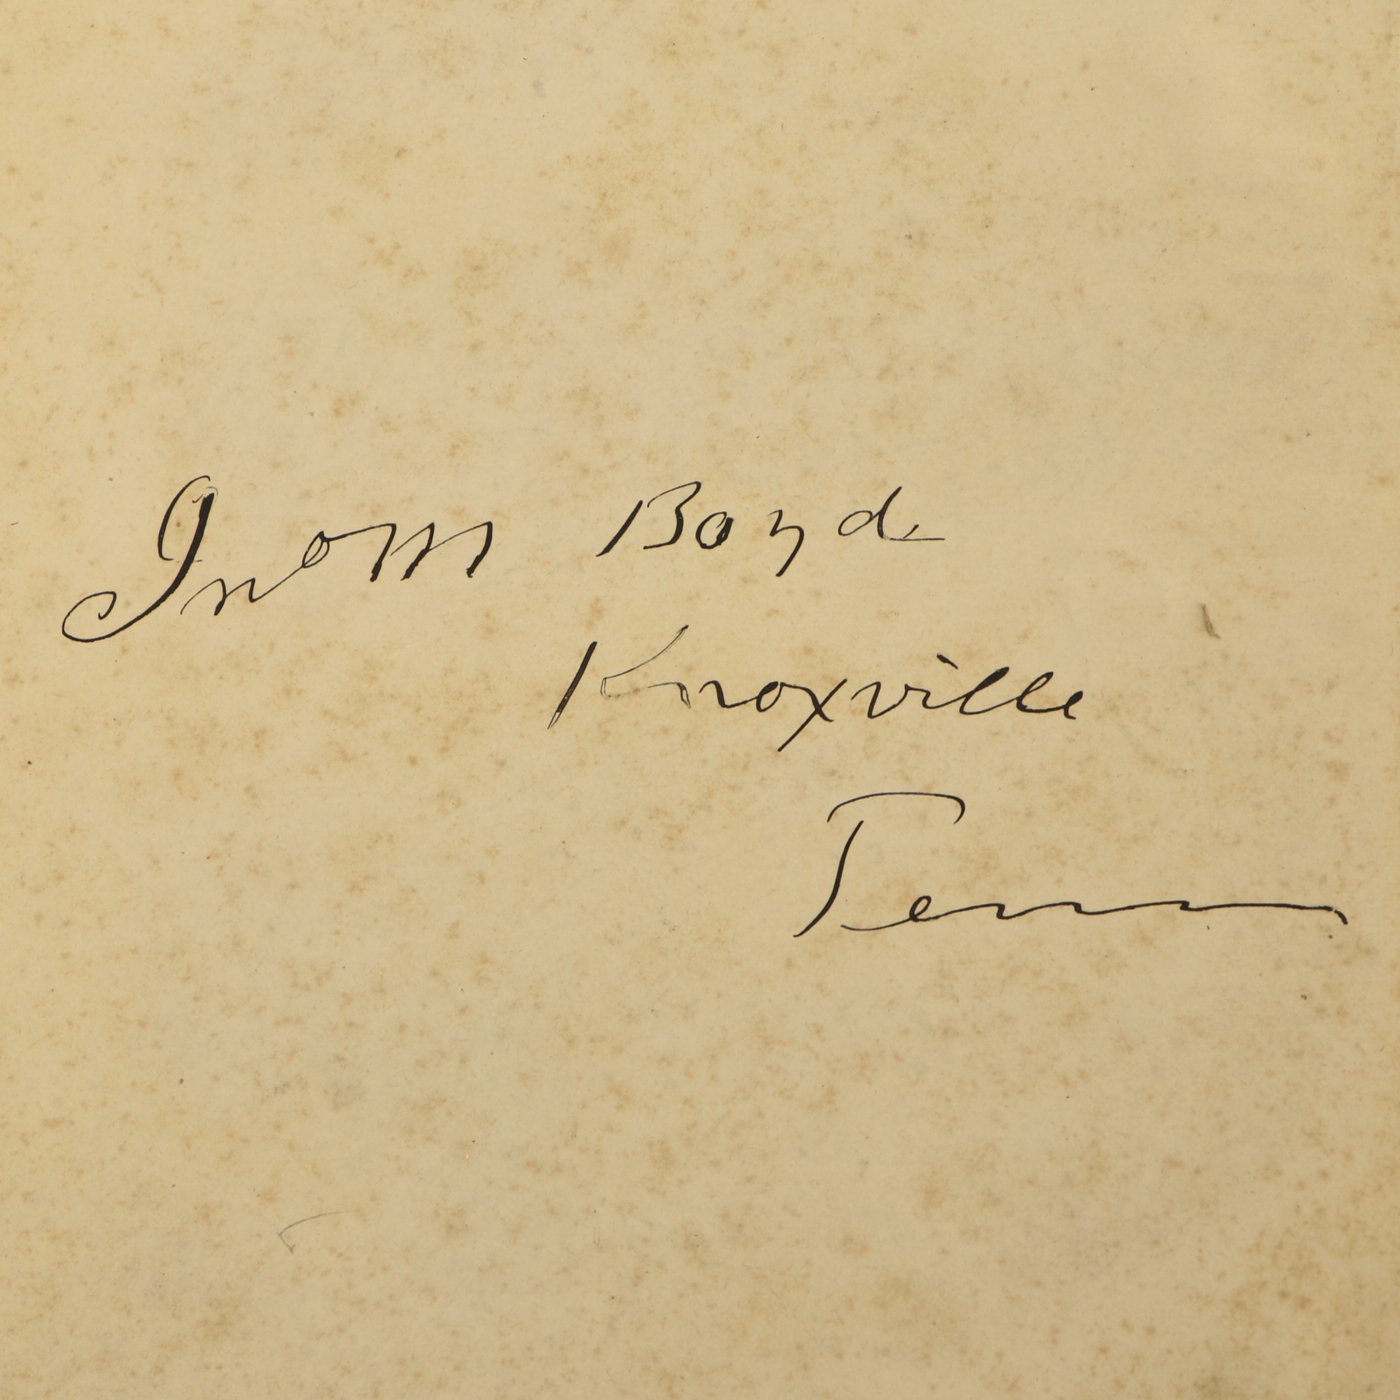 Jno M Boyd
Knoxville
Tenn